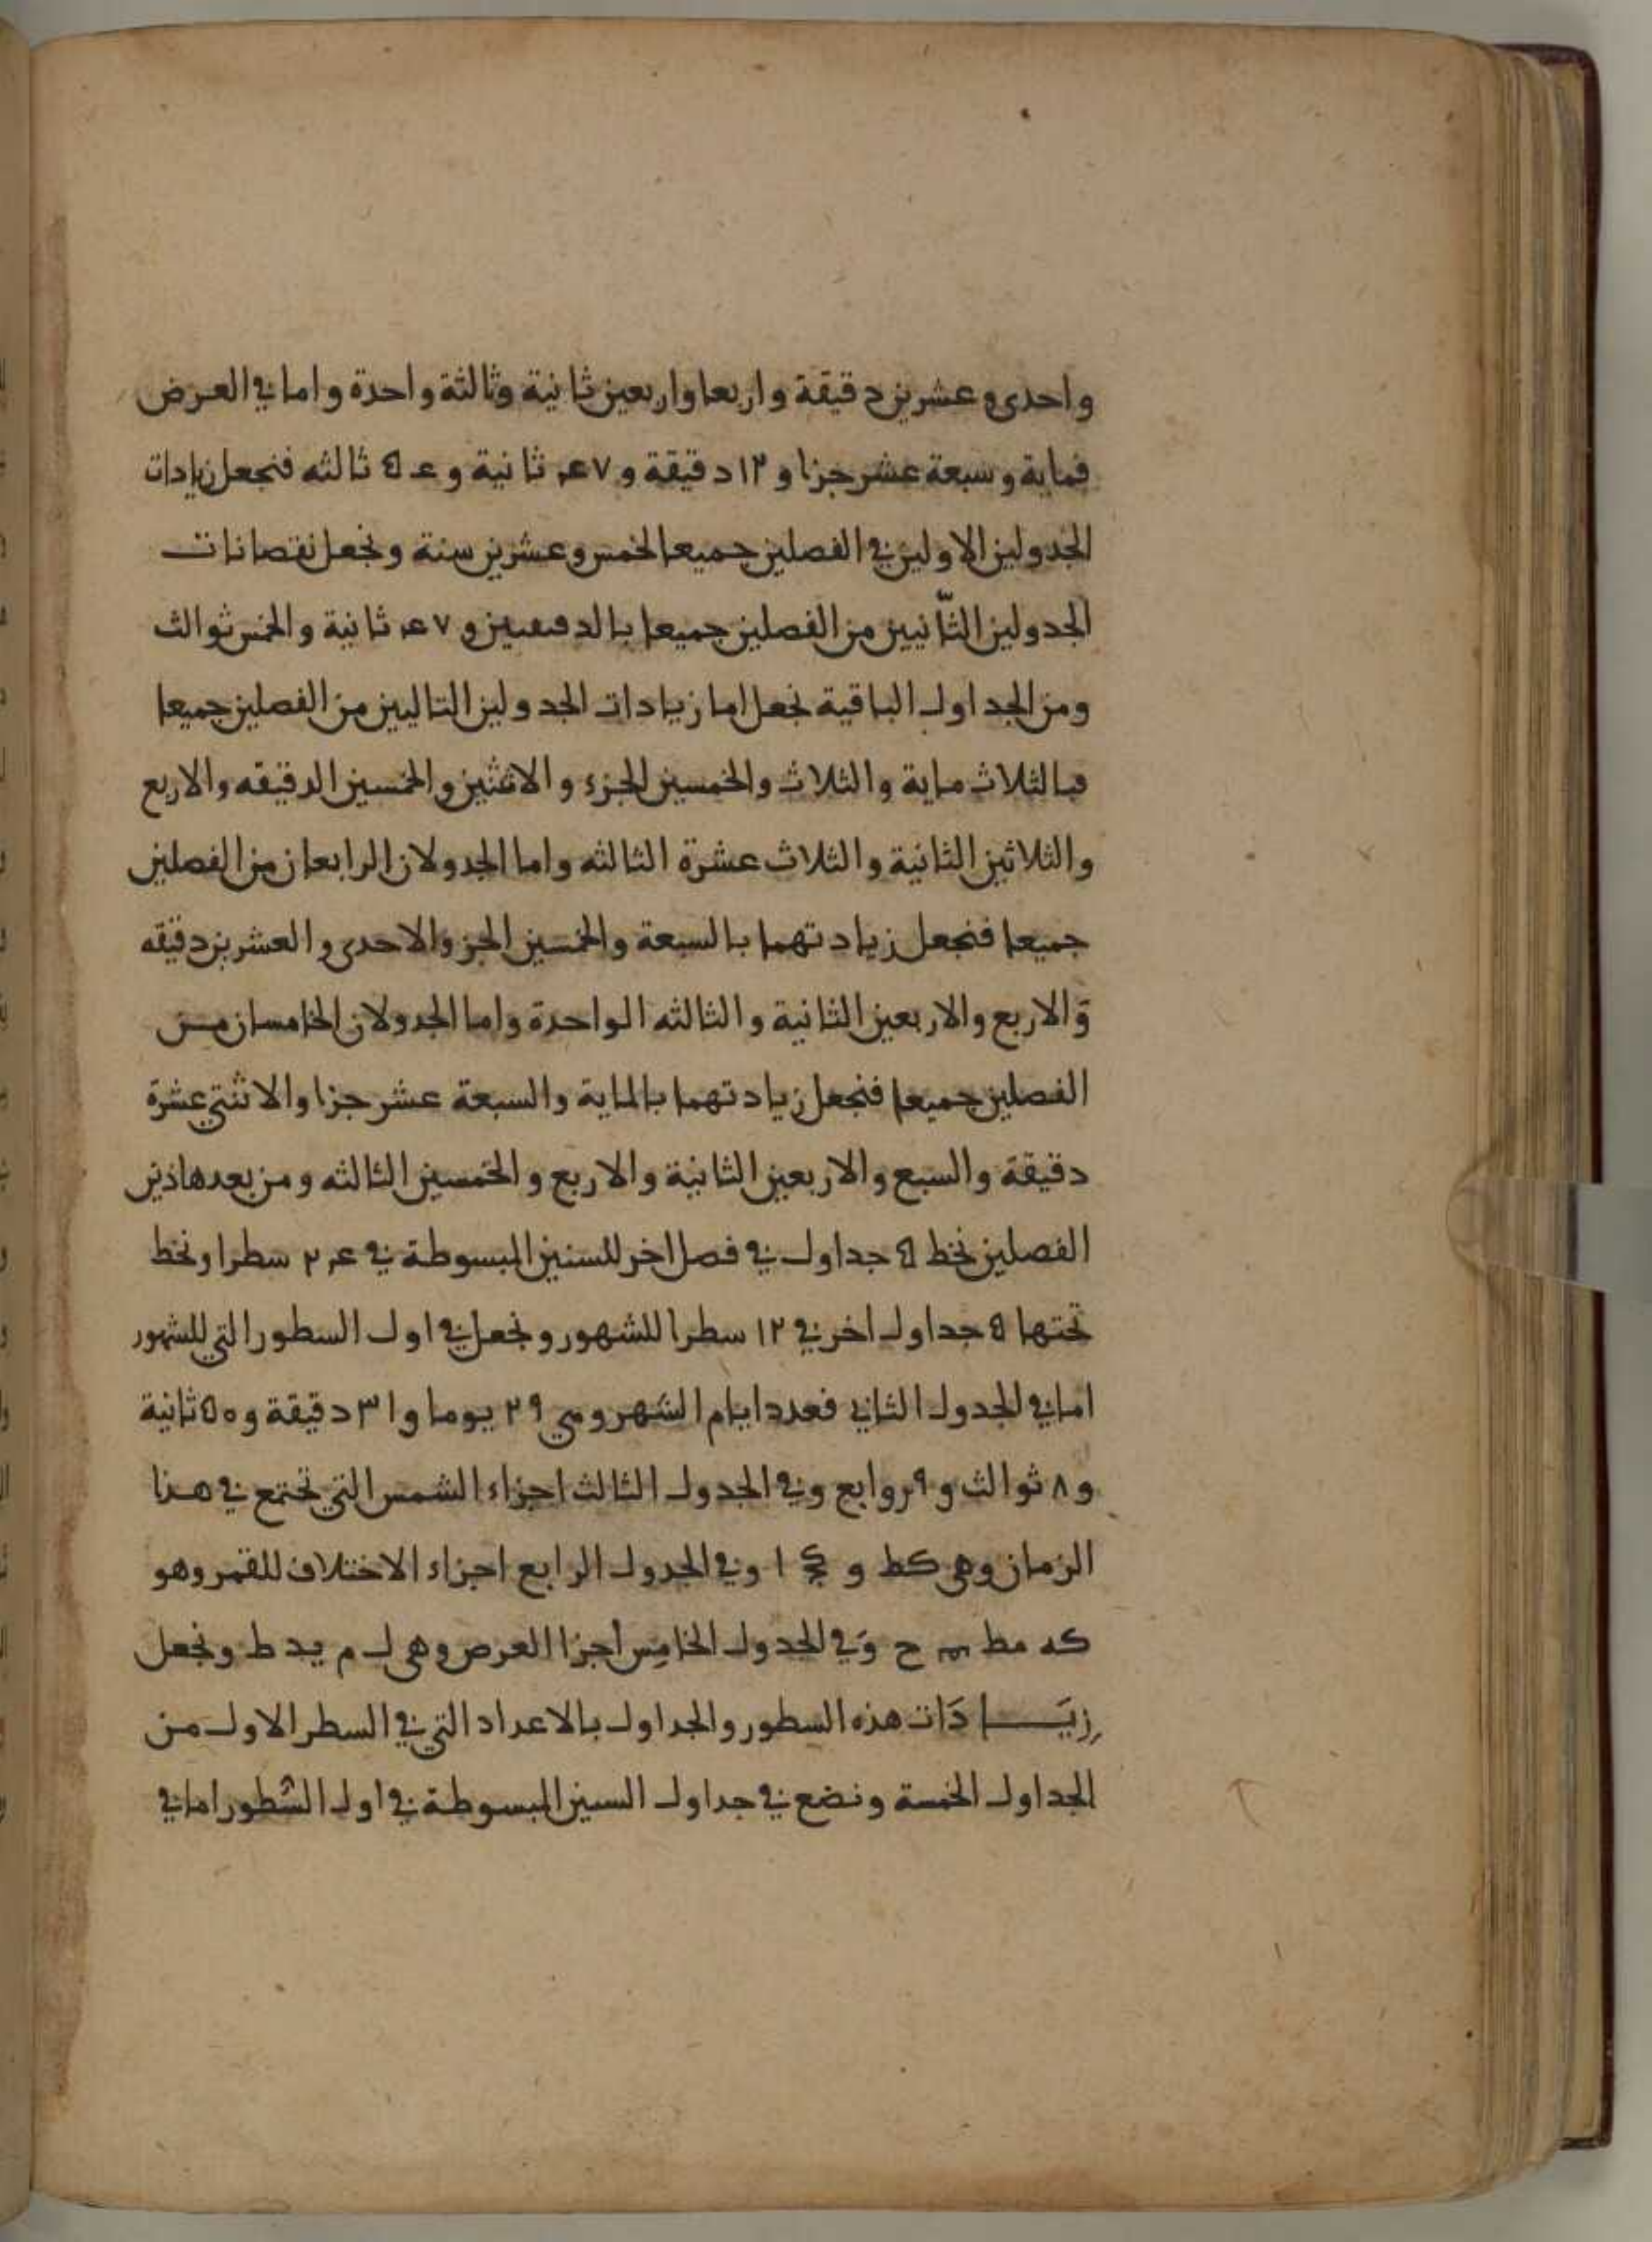 واحدى وعشرين دقيقة واربعا واربعين ثانية وثالثة واحدة واما في العرض
فماية وسبعة عشر جزا و ١٢ دقيقة و ٤٧ ثانية و ٥٤ ثالثه فنجعل زيادات
الجدولين الاولين في الفصلين جميعا لخمس وعشرين سنة ونجعل نقصانات
الجدولين الثّانيين من الفصلين جميعا بالدقيقتين و ٤٧ ثانية والخمس ثوالث
ومن الجداول الباقية نجعل اما زيادات الجدولين التاليين من الفصلين جميعا
فبالثلاث ماية والثلاث والخمسين الجزء والاثنين والخمسين الدقيقه والاربع
والثلاثين الثانية والثلاث عشرة الثالثه واما الجدولان الرابعان من الفصلين
جميعا فنجعل زيادتهما بالسبعة والخمسين الجز والاحدى والعشرين دقيقه
والاربع والاربعين الثانية والثالثه الواحدة واما الجدولان الخامسان من
الفصلين جميعا فنجعل زيادتهما بالماية والسبعة عشر جزا والاثنتي عشرة
دقيقة والسبع والاربعين الثانية والاربع والخمسين الثالثه ومن بعد هاذين
الفصلين نخط ٥ جداول في فصل اخر للسنين المبسوطة في ٢٤ سطرا ونخط
تحتها ٥ جداول اخر في ١٢ سطرا للشهور ونجعل في اول السطور التي للشهور
اما في الجدول الثاني فعدد ايام الشهر وهي ٢٩ يوما و ٣١ دقيقة و ٥٠ ثانية
و ٨ ثوالث و ٩ روابع وفي الجدول الثالث اجزاء الشمس التي تجتمع في هذا
الزمان وهي كط و كج ا وفي الجدول الرابع اجزاء الاختلاف للقمر وهو
كه مط ح وَفي الجدول الخامِس أجزا العرض وهي ل م يد ط ونجعل
زيَادَات هذه السطور والجداول بالاعداد التي في السطر الاول من
الجداول الخمسة ونضع في جداول السنين المبسوطة في اول السُطور اما في